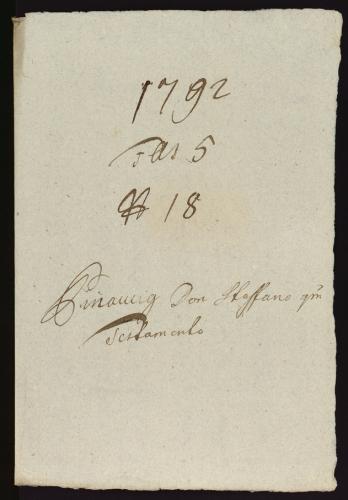 1792
fas 5
N 18
Don Steffano qm
Testamento